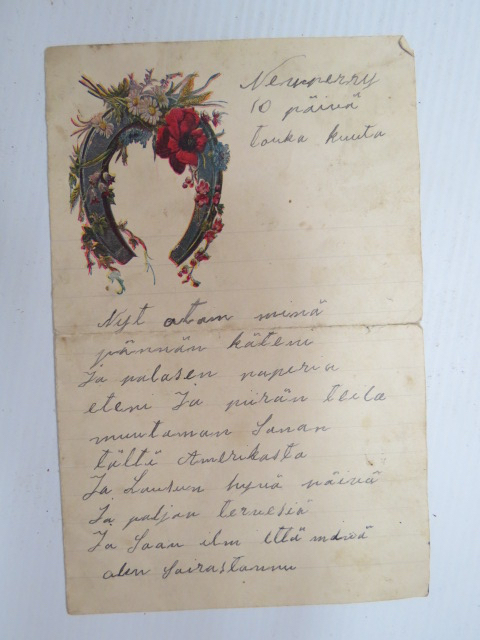 Newperry
10 päivä
touka kuuta
Nyt otan minä
pännän käteni
Ja palasen paperia
eteni Ja piirän teile
muutaman Sanan
tältä Amerikasta
Ja Lausun hyvä päivä
Ja paljon terveisiä
Ja Saan ilm että minä
olen Sairastannu